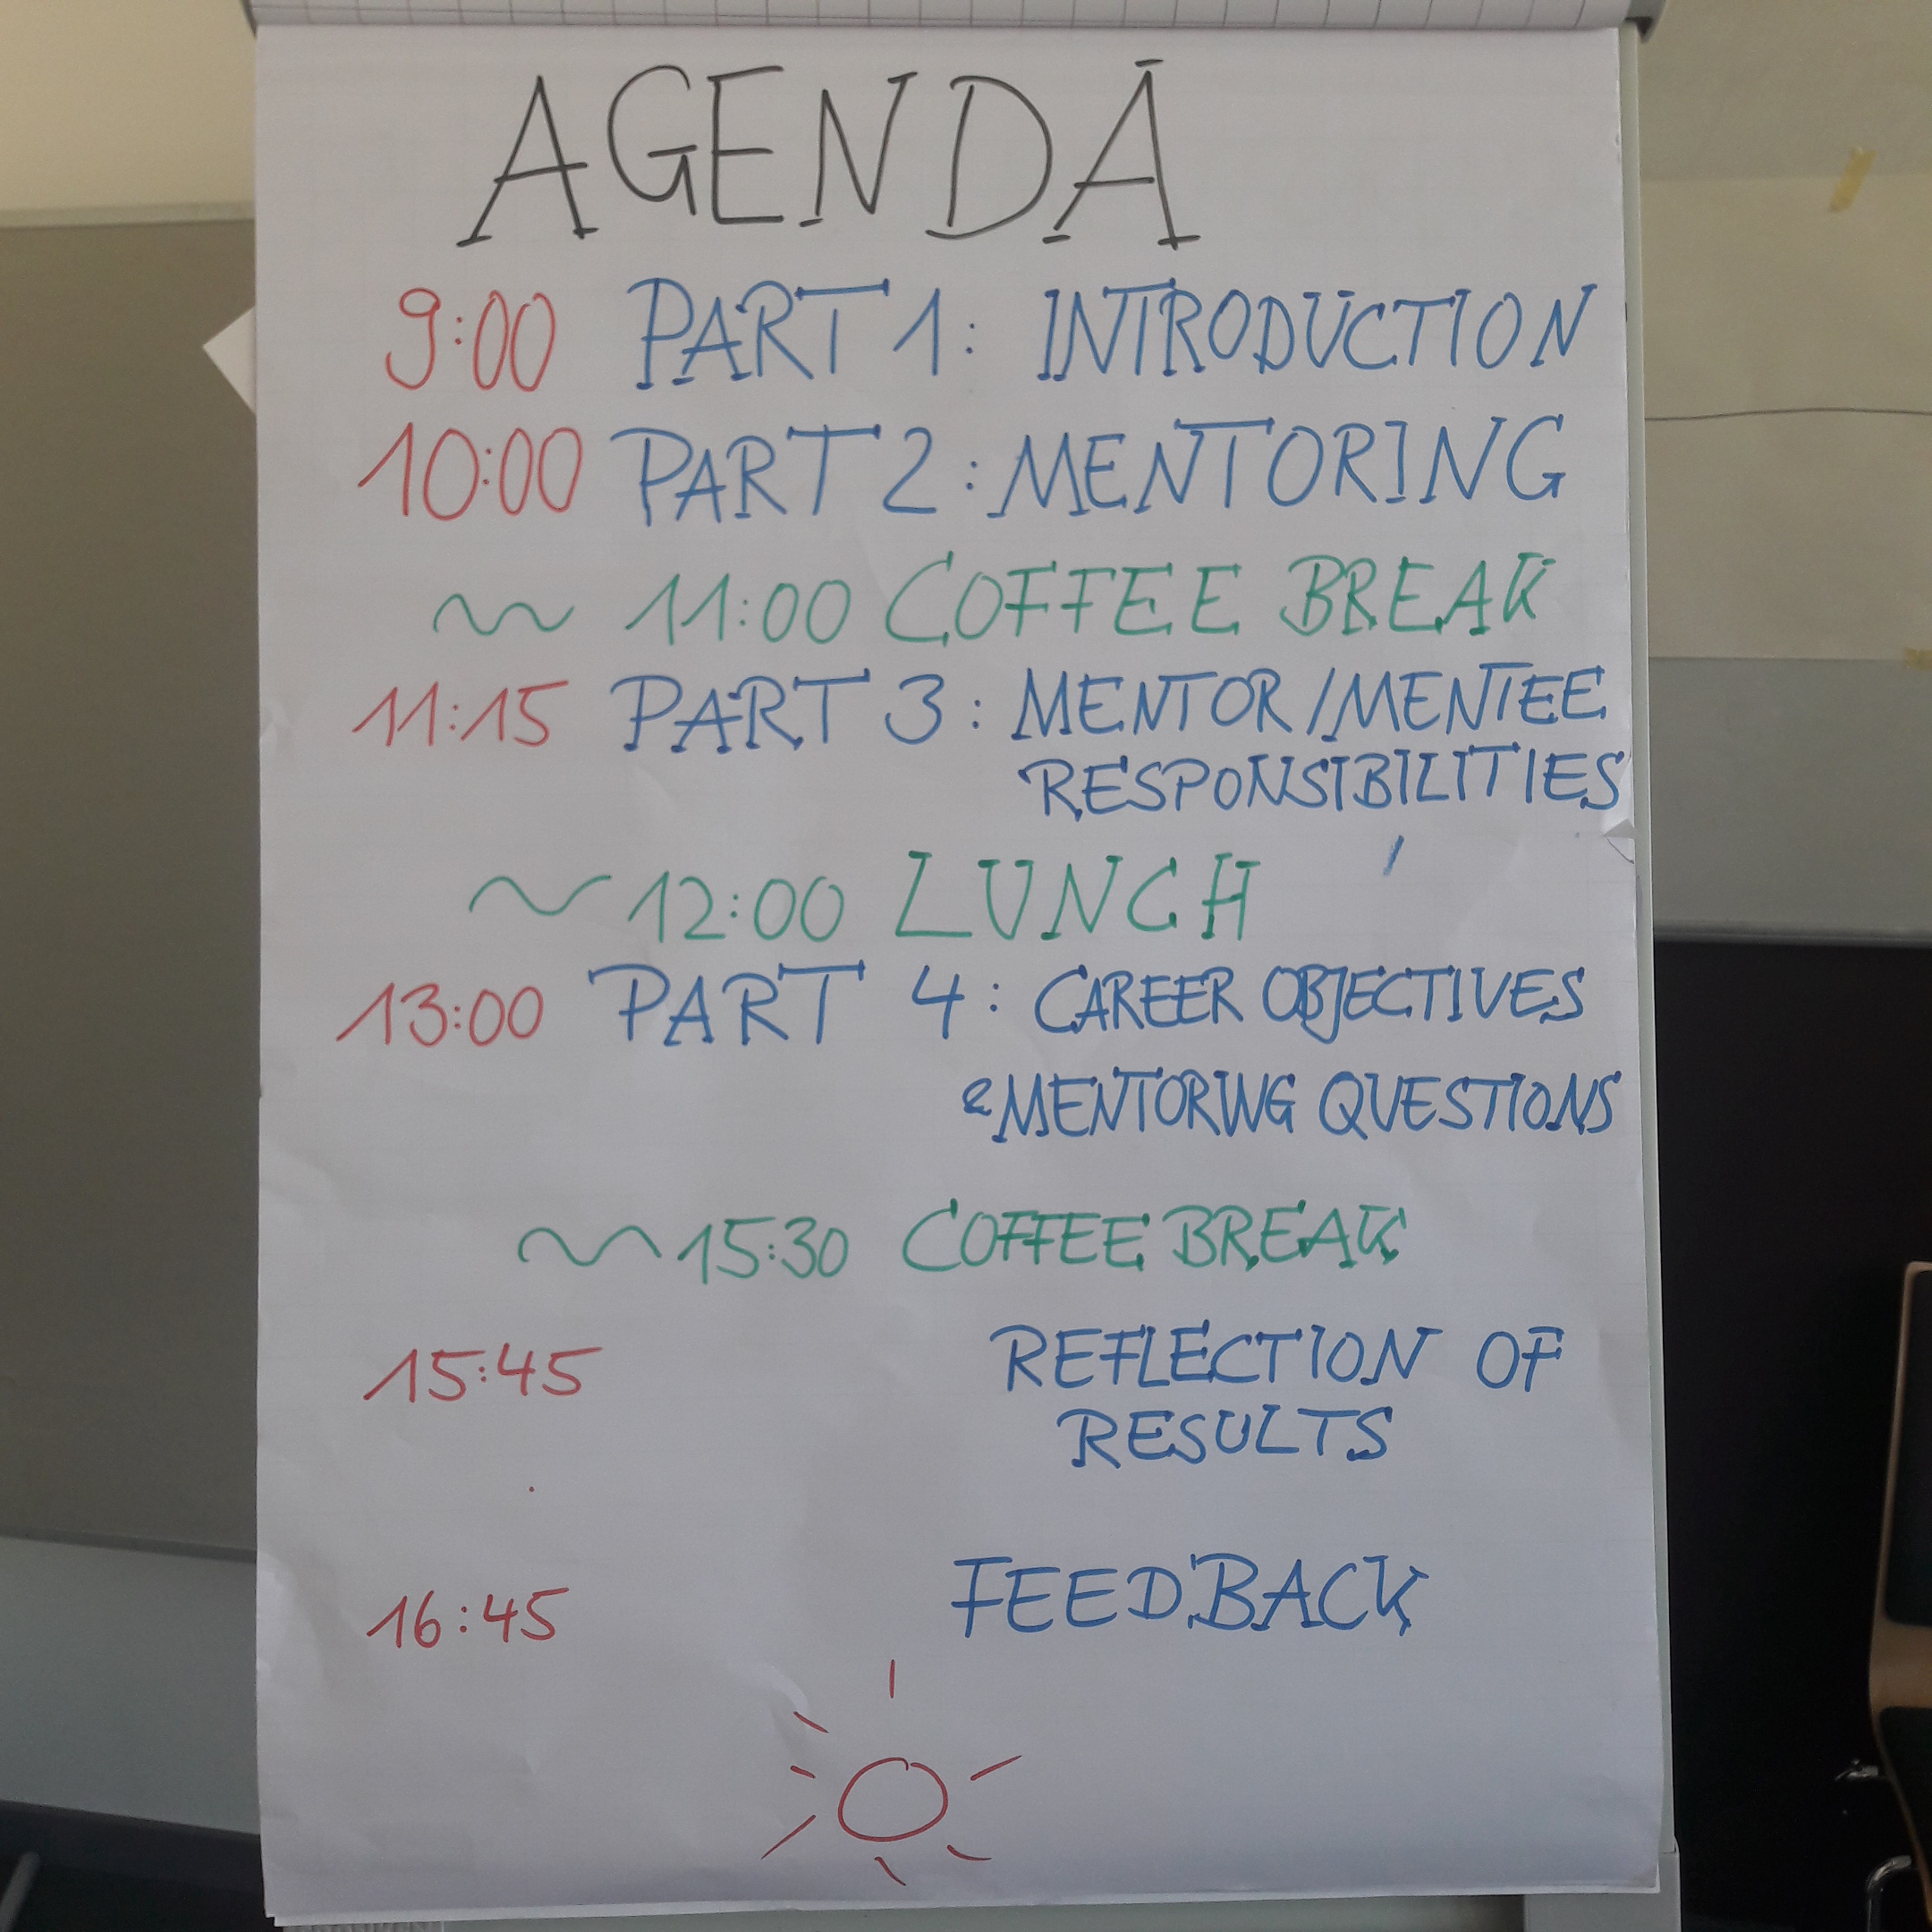 AGENDA
9:00 PART 1: INTRODUCTION
10:00 PART 2: MENTORING
~ 11:00 COFFEE BREAK
11:15 PART 3: MENTOR/MENTEE
RESPONSIBILITIES
~ 12:00 LUNCH
13:00 PART 4: CAREER OBJECTIVES
& MENTORING QUESTIONS
~ 15:30 COFFEE BREAK
15:45 REFLECTION OF
RESULTS
16:45 FEEDBACK